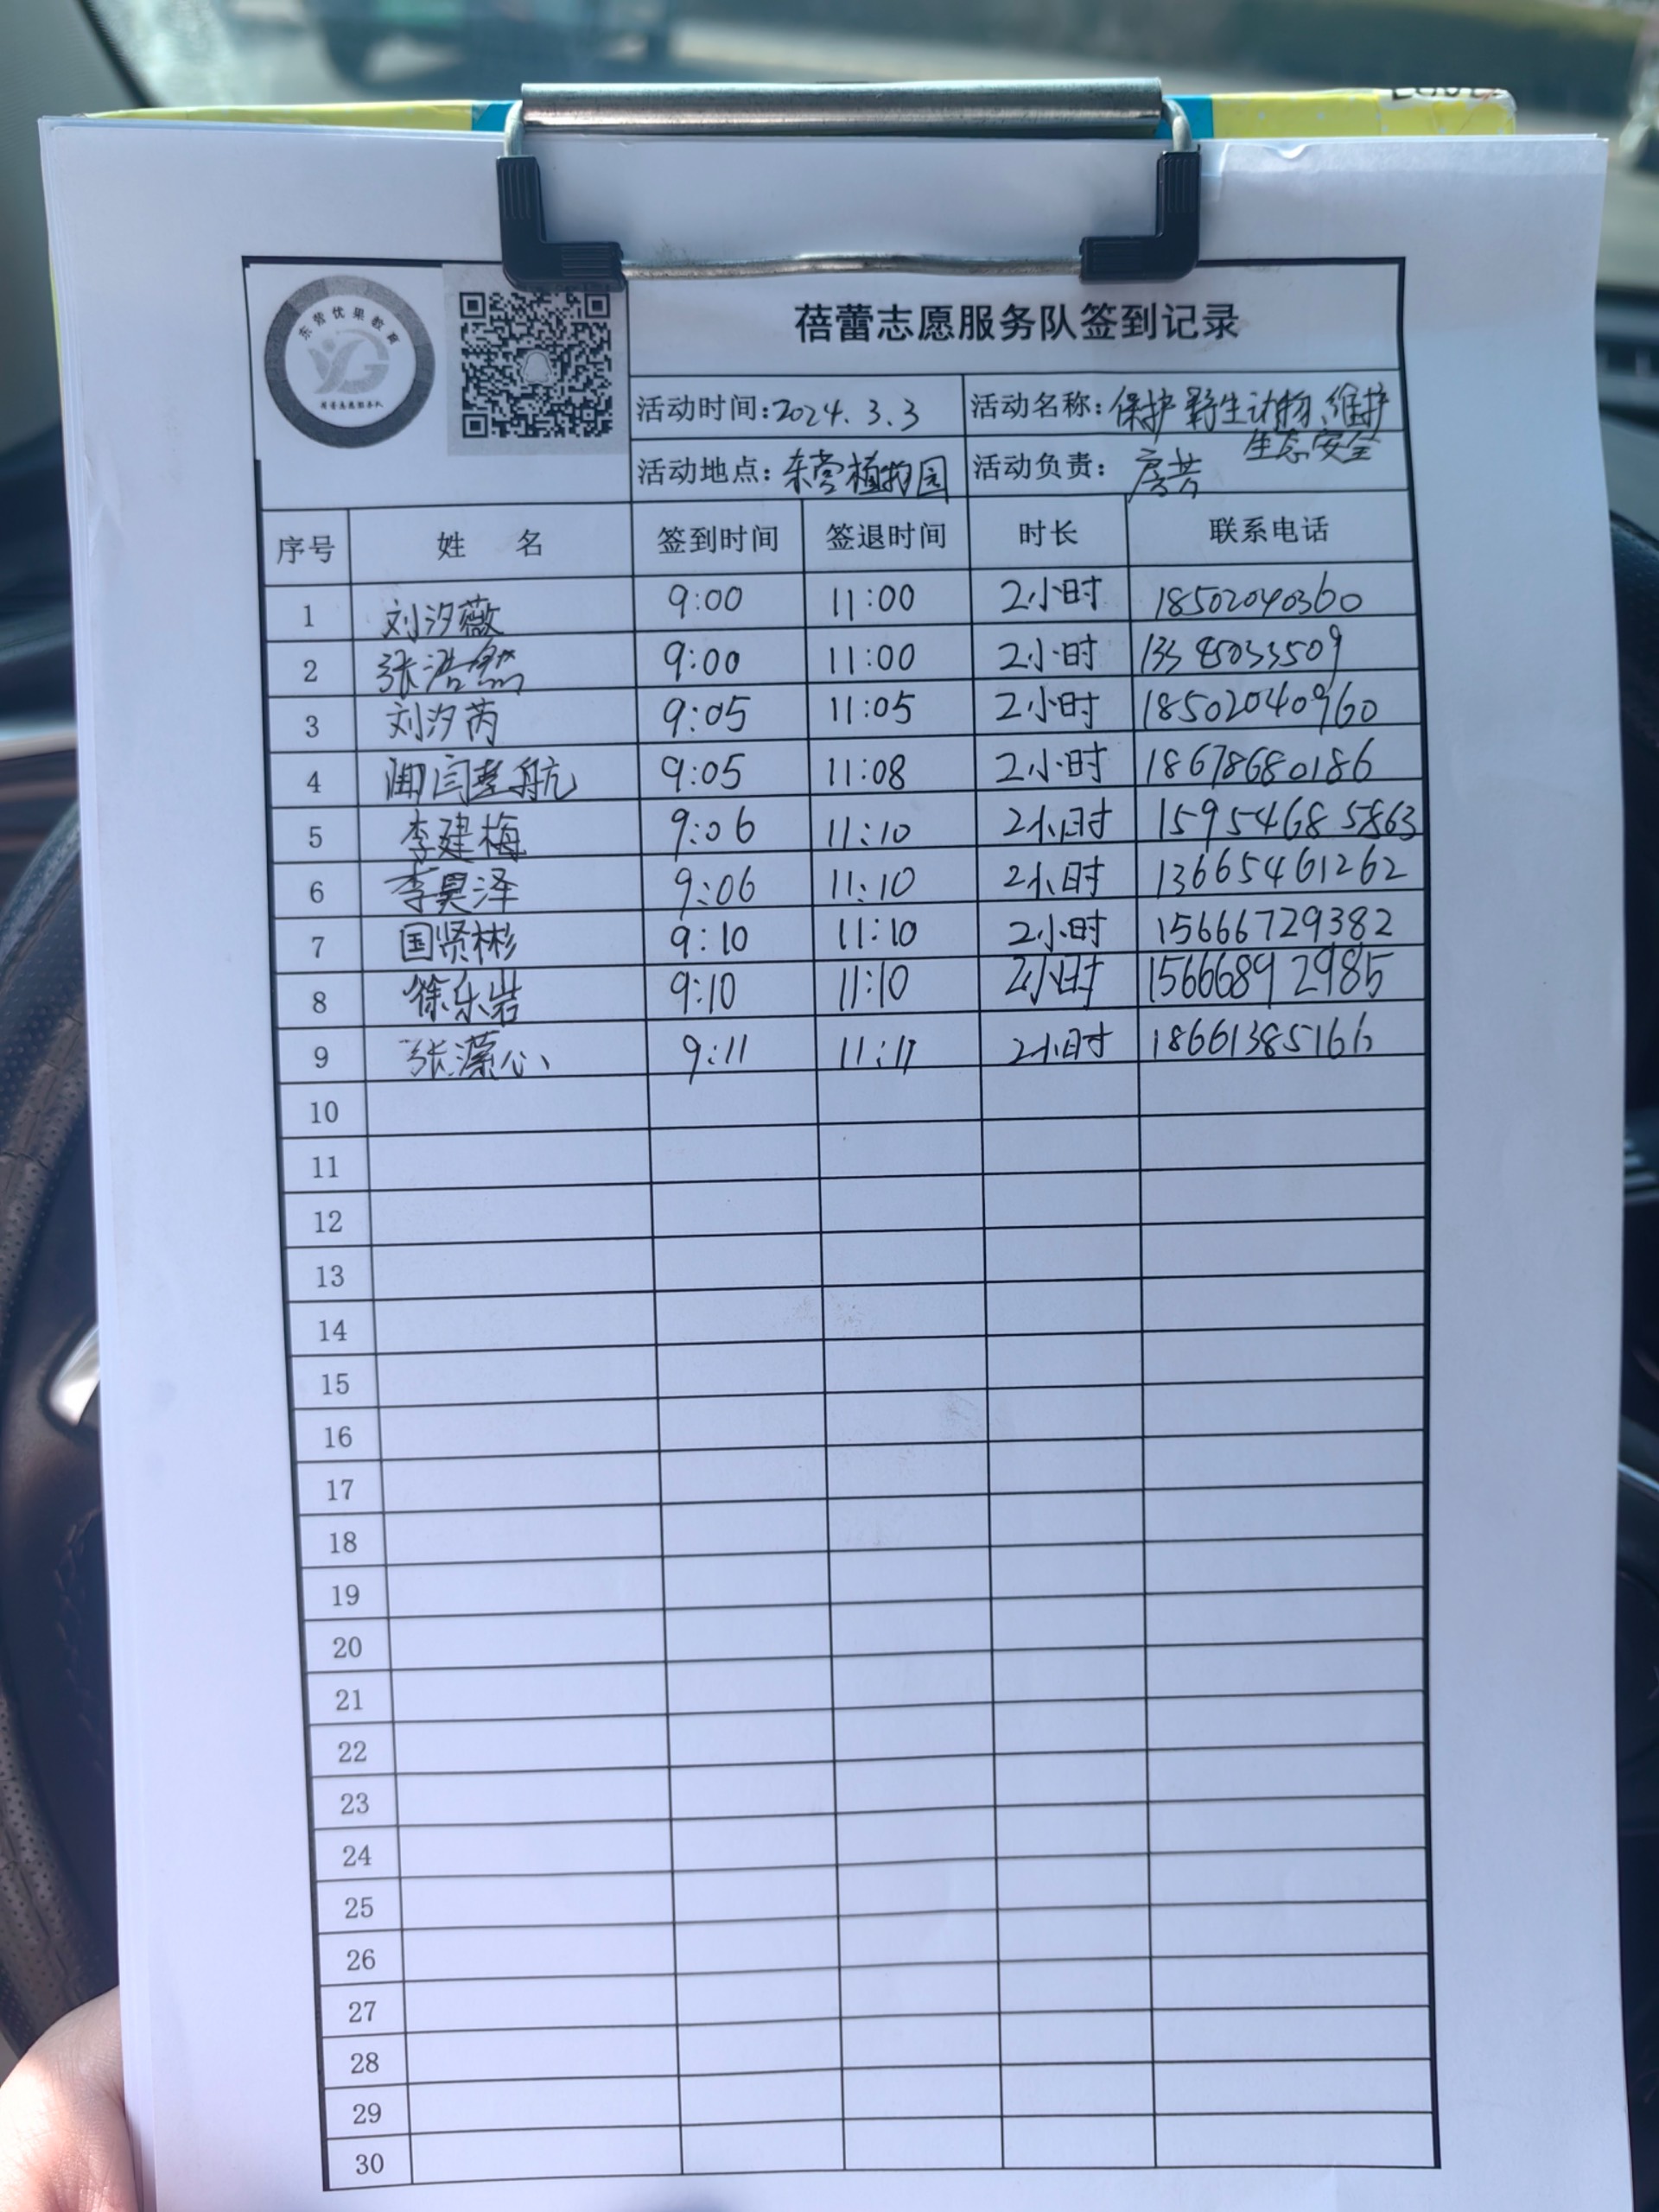 东营优果教育
蓓蕾志愿服务队
蓓蕾志愿服务队签到记录
活动时间:2024.3.3 活动名称:保护野生动物、维护
生态安全
活动地点:东营植物园 活动负责:房芸
序号 姓 名 签到时间 签退时间 时长 联系电话
1 刘汐薇 9:00 11:00 2小时 18502040360
2 张浩然 9:00 11:00 2小时 13385033509
3 刘汐芮 9:05 11:05 2小时 18502040960
4 闫孝航 9:05 11:08 2小时 18678680186
5 李建梅 9:06 11:10 2小时 15954685863
6 李昊泽 9:06 11:10 2小时 13665461262
7 国贤彬 9:10 11:10 2小时 15666729382
8 徐乐岩 9:10 11:10 2小时 15666892985
9 张潆心 9:11 11:11 2小时 18661385166
10
11
12
13
14
15
16
17
18
19
20
21
22
23
24
25
26
27
28
29
30